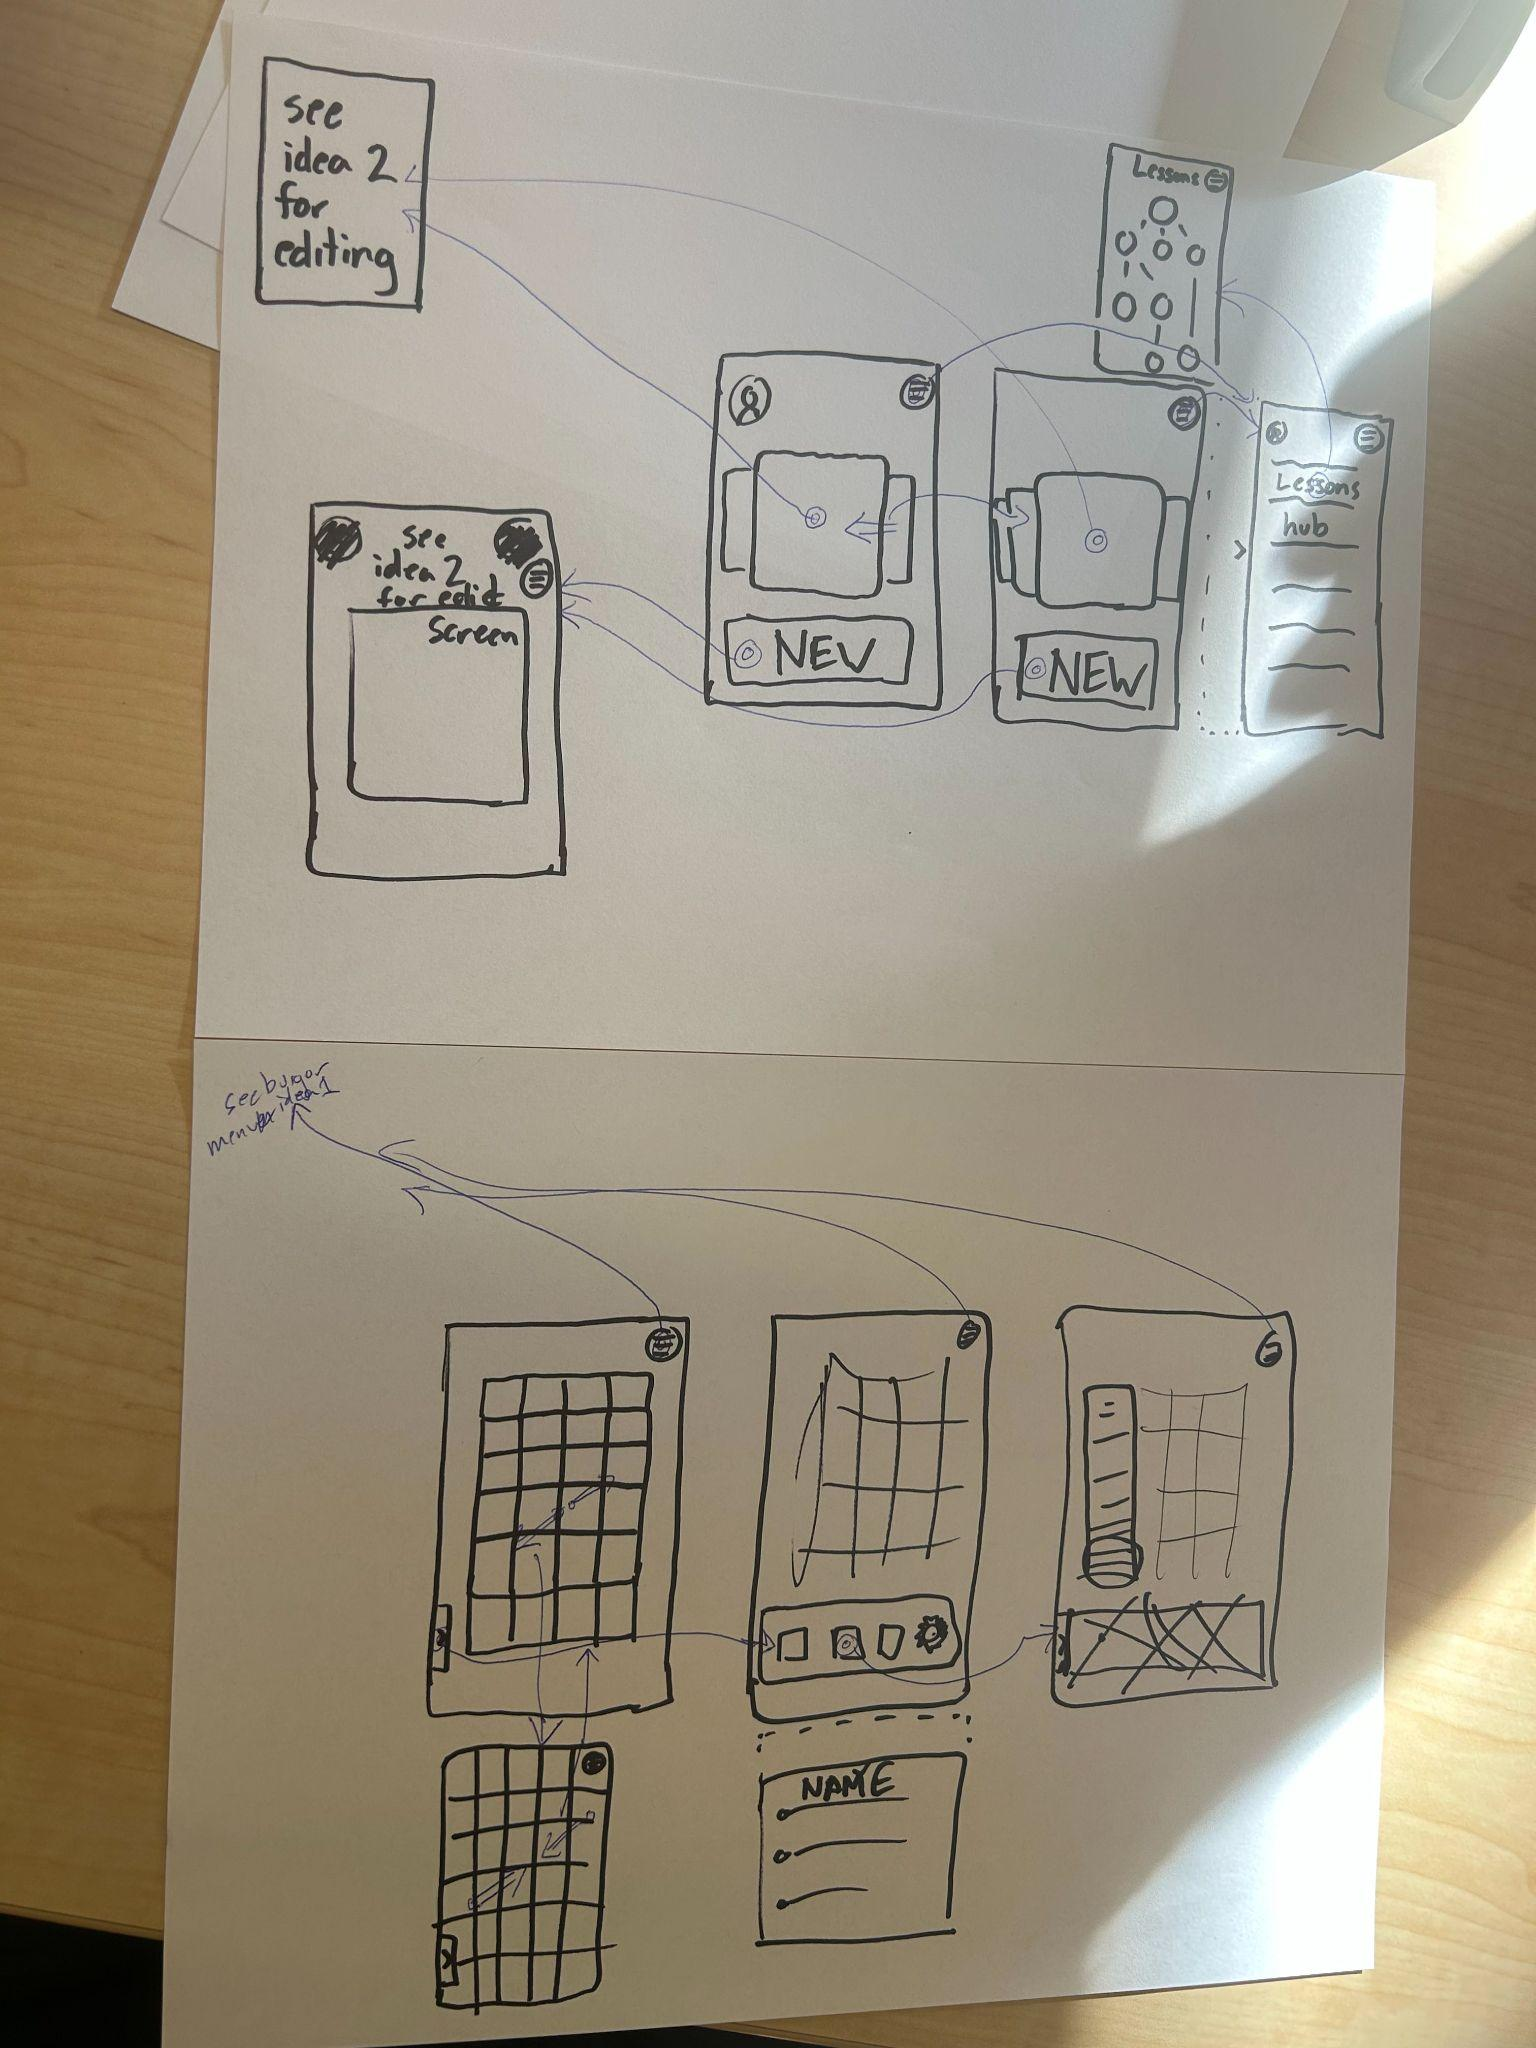 see
idea 2
for
editing
Lessons
Lessons
hub
see
idea 2
for edit
screen
NEW
NEW
see burgor
menu idea 1
NAME